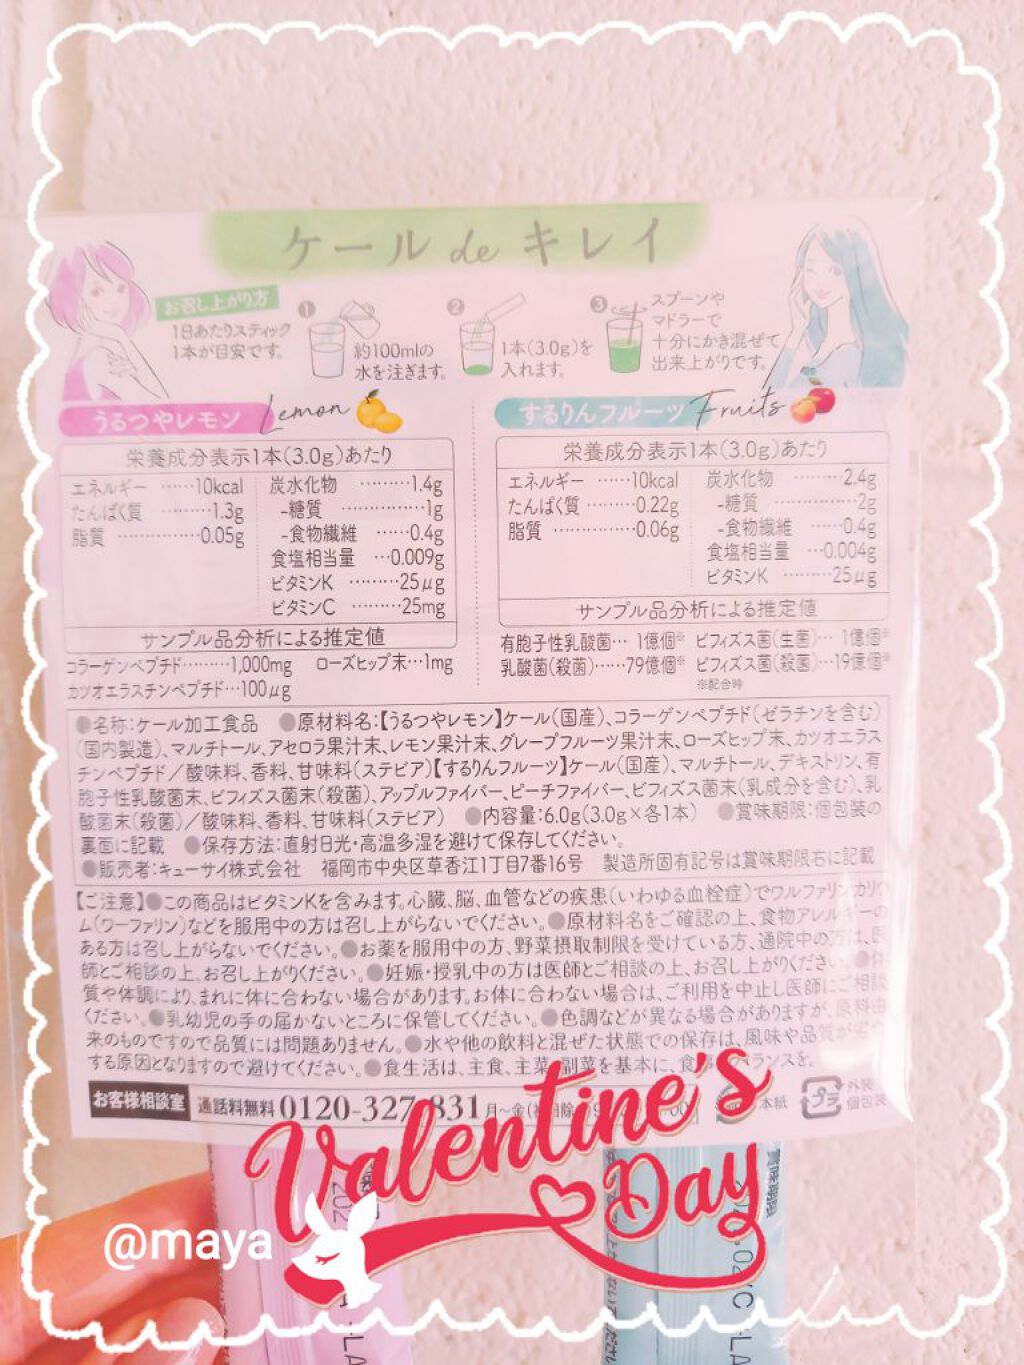 ケール de キレイ
お召し上がり方
1日あたりスティック
1本が目安です。
1
約100mlの
水を注ぎます。
2
1本(3.0g)を
入れます。
3
スプーンや
マドラーで
十分にかき混ぜて
出来上がりです。
うるつやレモン Lemon
栄養成分表示1本(3.0g)あたり
エネルギー ……10kcal
たんぱく質 ………1.3g
脂質 …………0.05g
炭水化物 ………1.4g
-糖質 ……………1g
-食物繊維 ……0.4g
食塩相当量 …0.009g
ビタミンK ………25μg
ビタミンC ………25mg
サンプル品分析による推定値
コラーゲンペプチド………1,000mg ローズヒップ末…1mg
カツオエラスチンペプチド…100μg
するりんフルーツ Fruits
栄養成分表示1本(3.0g)あたり
エネルギー ……10kcal
たんぱく質 ……0.22g
脂質 …………0.06g
炭水化物 ………2.4g
-糖質 ……………2g
-食物繊維 ……0.4g
食塩相当量 …0.004g
ビタミンK ………25μg
サンプル品分析による推定値
有胞子性乳酸菌… 1億個※ ビフィズス菌(生菌)… 1億個※
乳酸菌(殺菌)……79億個※ ビフィズス菌(殺菌)…19億個※
※配合時
●名称:ケール加工食品 ●原材料名:【うるつやレモン】ケール(国産)、コラーゲンペプチド(ゼラチンを含む)
(国内製造)、マルチトール、アセロラ果汁末、レモン果汁末、グレープフルーツ果汁末、ローズヒップ末、カツオエラス
チンペプチド/酸味料、香料、甘味料(ステビア)【するりんフルーツ】ケール(国産)、マルチトール、デキストリン、有
胞子性乳酸菌末、ビフィズス菌末(殺菌)、アップルファイバー、ピーチファイバー、ビフィズス菌末(乳成分を含む)、乳
酸菌末(殺菌)/酸味料、香料、甘味料(ステビア) ●内容量:6.0g(3.0g×各1本) ●賞味期限:個包装の
裏面に記載 ●保存方法:直射日光・高温多湿を避けて保存してください。
●販売者:キューサイ株式会社 福岡市中央区草香江1丁目7番16号 製造所固有記号は賞味期限右に記載
【ご注意】●この商品はビタミンKを含みます。心臓、脳、血管などの疾患(いわゆる血栓症)でワルファリンカリウ
ム(ワーファリン)などを服用中の方は召し上がらないでください。●原材料名をご確認の上、食物アレルギーの
ある方は召し上がらないでください。●お薬を服用中の方、野菜摂取制限を受けている方、通院中の方は、医
師とご相談の上、お召し上がりください。●妊娠・授乳中の方は医師とご相談の上、お召し上がりください。●体
質や体調により、まれに体に合わない場合があります。お体に合わない場合は、ご利用を中止し医師にご相談
ください。●乳幼児の手の届かないところに保管してください。●色調などが異なる場合がありますが、原料由
来のものですので品質には問題ありません。●水や他の飲料と混ぜた状態での保存は、風味や品質が
する原因となりますので避けてください。●食生活は、主食、主菜、副菜を基本に、食事のバランスを。
お客様相談室 通話料無料 0120-327-831 月~金(祝日除
本紙
プラ
外装
個包装
Valentine's
Day
@maya